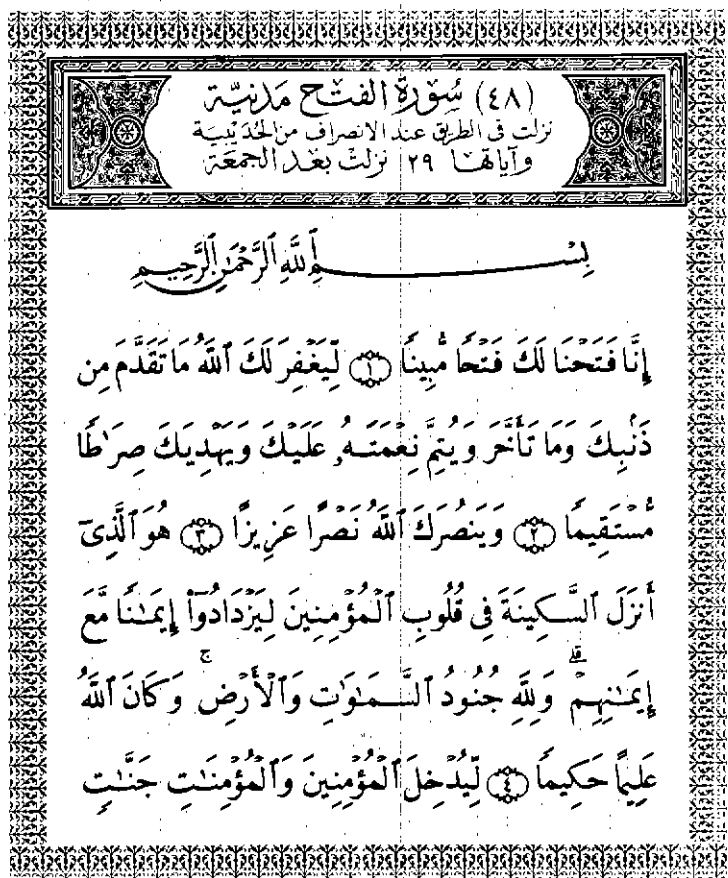 (٤٨) سُورَة الفَتْح مَدَنِيَّة
نزلت فى الطريق عند الانصراف من الحُدَيْبية
وآياتها ٢٩ نزلت بعد الجمعَة
بِسْمِ ٱللَّهِ ٱلرَّحْمَٰنِ ٱلرَّحِيمِ
إِنَّا فَتَحْنَا لَكَ فَتْحًا مُّبِينًا ۝١ لِّيَغْفِرَ لَكَ ٱللَّهُ مَا تَقَدَّمَ مِن
ذَنۢبِكَ وَمَا تَأَخَّرَ وَيُتِمَّ نِعْمَتَهُۥ عَلَيْكَ وَيَهْدِيَكَ صِرَٰطًا
مُّسْتَقِيمًا ۝٢ وَيَنصُرَكَ ٱللَّهُ نَصْرًا عَزِيزًا ۝٣ هُوَ ٱلَّذِىٓ
أَنزَلَ ٱلسَّكِينَةَ فِى قُلُوبِ ٱلْمُؤْمِنِينَ لِيَزْدَادُوٓا۟ إِيمَٰنًا مَّعَ
إِيمَٰنِهِمْ ۗ وَلِلَّهِ جُنُودُ ٱلسَّمَٰوَٰتِ وَٱلْأَرْضِ ۚ وَكَانَ ٱللَّهُ
عَلِيمًا حَكِيمًا ۝٤ لِّيُدْخِلَ ٱلْمُؤْمِنِينَ وَٱلْمُؤْمِنَٰتِ جَنَّٰتٍ